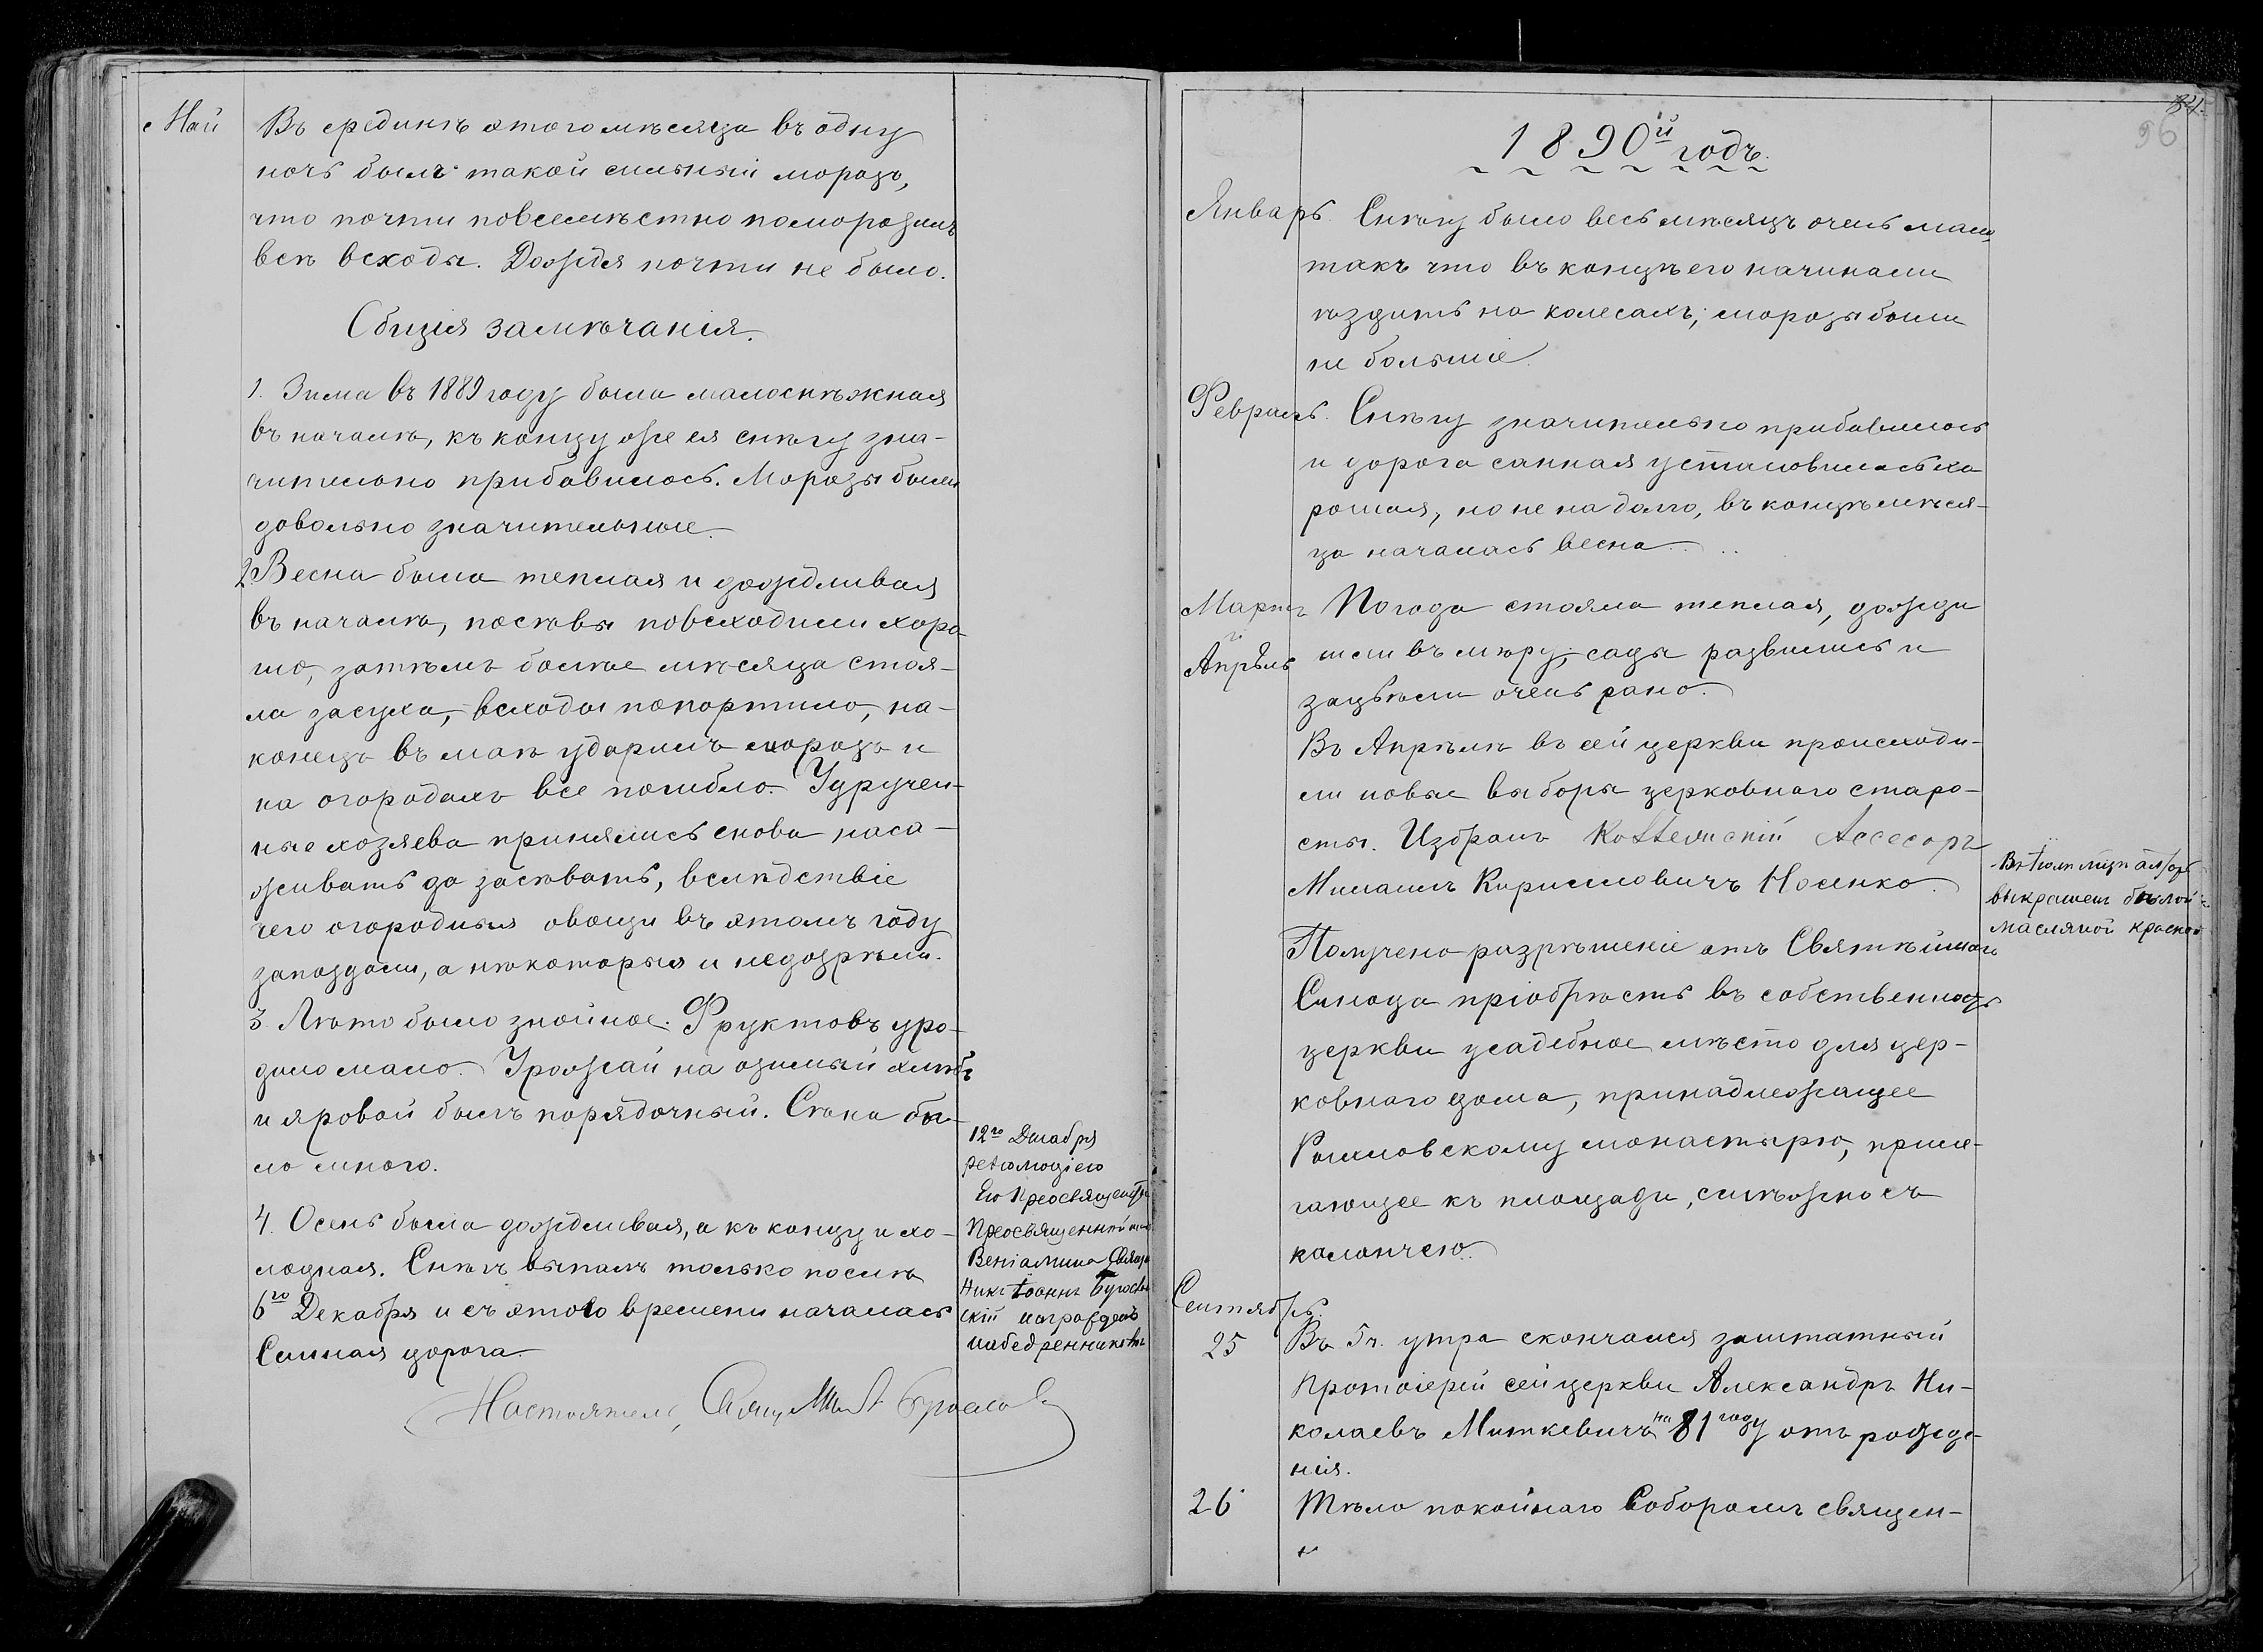 Май
Въ срединѣ этого мѣсяца въ одну
ночь былъ такой сильный морозъ,
что почти повсемѣстно поморозилъ
всѣ всходы. Дождя почти не было.
Общія замѣчанія.
1. Зима въ 1889 году была малоснѣжная
въ началѣ, къ концу же ея снѣгу зна-
чительно прибавилось. Морозы были
довольно значительные.
2. Весна была теплая и дождливая
въ началѣ, посѣвы повсходили хоро
шо, затѣмъ болѣе мѣсяца стоя-
ла засуха, всходы попортило, на-
конецъ въ маѣ ударилъ морозъ и
на огородахъ все погибло. Удручен-
ные хозяева принялись снова наса-
живать да засѣвать, вслѣдствіе
чего огородныя овощи въ этомъ году
запоздали, а нѣкоторыя и недозрѣли.
3. Лѣто было знойное. Фруктовъ уро-
дило мало. Урожай на озимый хлѣбъ
и яровой былъ порядочный. Сѣна бы-
ло много.
4. Осень была дождливая, а къ концу и хо-
лодная. Снѣгъ выпалъ только послѣ
6го Декабря и съ этого времени началась
Санная дорога.
Настоятель, Священ.
12го Декабря
резолюціею
Его Преосвященства
Преосвященнѣйшаго
Веніамина Священ
Никъ Іоаннъ
скій награжденъ
набедренникомъ
96
1890й годъ.
Январь. Снѣгу было весь мѣсяцъ очень мало,
такъ что въ концѣ его начинали
ѣздить на колесахъ; морозы были
не большіе.
Февраль. Снѣгу значительно прибавилось
и дорога санная установилась хо
рошая, но не на долго, въ концѣ мѣся-
ца началась весна.
Мартъ Погода стояла теплая, дожди
и
Апрѣль шли въ мѣру, сады развились и
зацвѣли очень рано.
Въ Апрѣлѣ въ сей церкви происходи-
ли новые выборы церковнаго старо-
сты. Избранъ Коллежскій Ассесоръ
Михаилъ Кирилловичъ Носенко.
Въ Іюлѣ мцѣ алтарь
выкрашенъ бѣлой
масляной краской
Получено разрѣшеніе отъ Святѣйшаго
Синода пріобрѣсть въ собственность
церкви усадебное мѣсто для цер-
ковнаго дома, принадлежащее
Рыхловскому монастырю, приле-
гающее къ площади, смѣжно съ
каланчею.
Сентябрь.
25 Въ 5 ч. утра скончался заштатный
Протоіерей сей церкви Александръ Ни-
колаевъ Миткевичъ на 81 году отъ рожде-
нія.
26 Тѣло покойнаго Соборомъ священ-
н